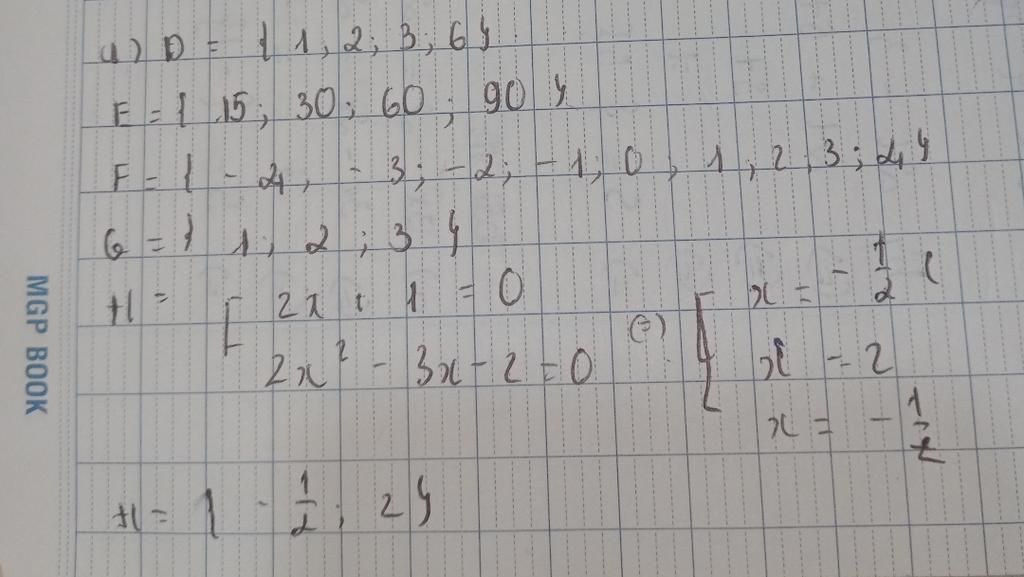 a) D = { 1, 2; 3; 6}
E = { 15; 30; 60; 90 }
F = { - 4, - 3; - 2; - 1; 0, 1, 2, 3; 4}
G = { 1; 2; 3 }
H = [ 2x + 1 = 0
2x² - 3x - 2 = 0
(=) [ x = - 1/2
x = 2
x = - 1/2
H = { - 1/2; 2}
MGP BOOK